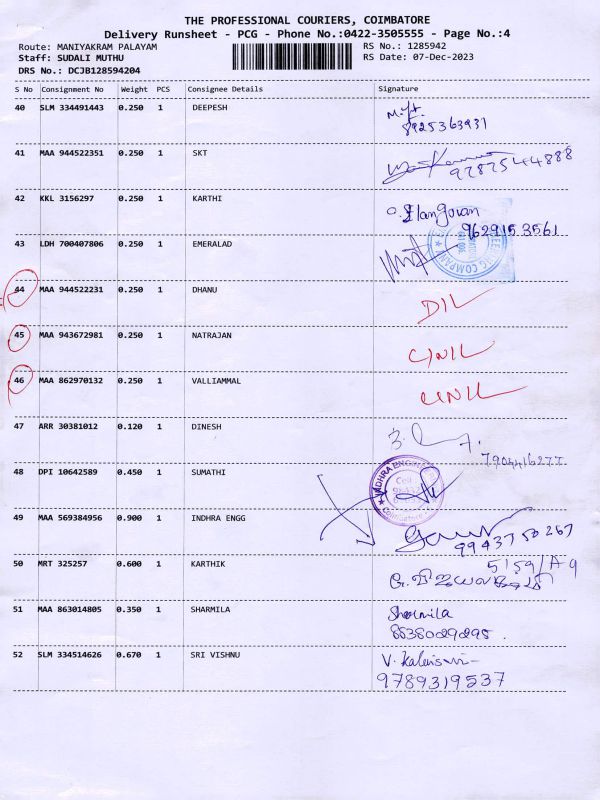 THE PROFESSIONAL COURIERS, COIMBATORE
Delivery Runsheet - PCG - Phone No.:0422-3505555 - Page No.:4
Route: MANIYAKRAM PALAYAM RS No.: 1285942
Staff: SUDALI MUTHU RS Date: 07-Dec-2023
DRS No.: DCJB128594204
S No Consignment No Weight PCS Consignee Details Signature
40 SLM 334491443 0.250 1 DEEPESH
8925363931
41 MAA 944522351 0.250 1 SKT
9787544888
42 KKL 3156297 0.250 1 KARTHI
9629153561
43 LDH 700407806 0.250 1 EMERALAD
44 MAA 944522231 0.250 1 DHANU
D/L
45 MAA 943672981 0.250 1 NATRAJAN
46 MAA 862970132 0.250 1 VALLIAMMAL
47 ARR 30381012 0.120 1 DINESH
7904416277
48 DPI 10642589 0.450 1 SUMATHI
49 MAA 569384956 0.900 1 INDHRA ENGG
9943750267
50 MRT 325257 0.600 1 KARTHIK
5159/A9
51 MAA 863014805 0.350 1 SHARMILA
Sharmila
52 SLM 334514626 0.670 1 SRI VISHNU
9789319537